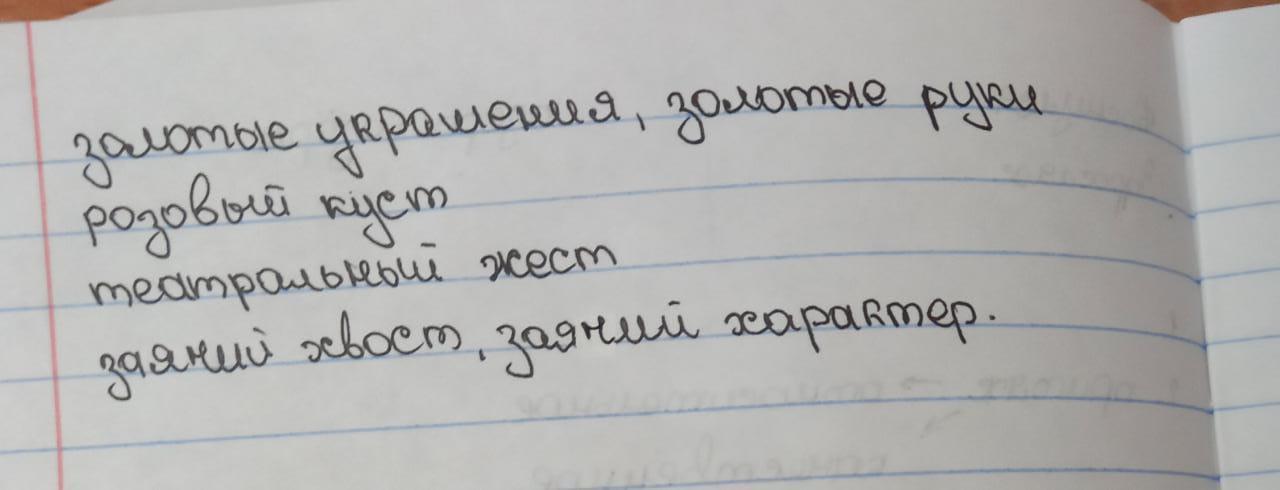 золотые украшения, золотые руки
розовый куст
театральный жест
заячий хвост, заячий характер.